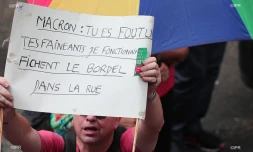 MACRON : TU ES FOUTU
TES FAINÉANTS DE FONCTIONN
FICHENT LE BORDEL
DANS LA RUE